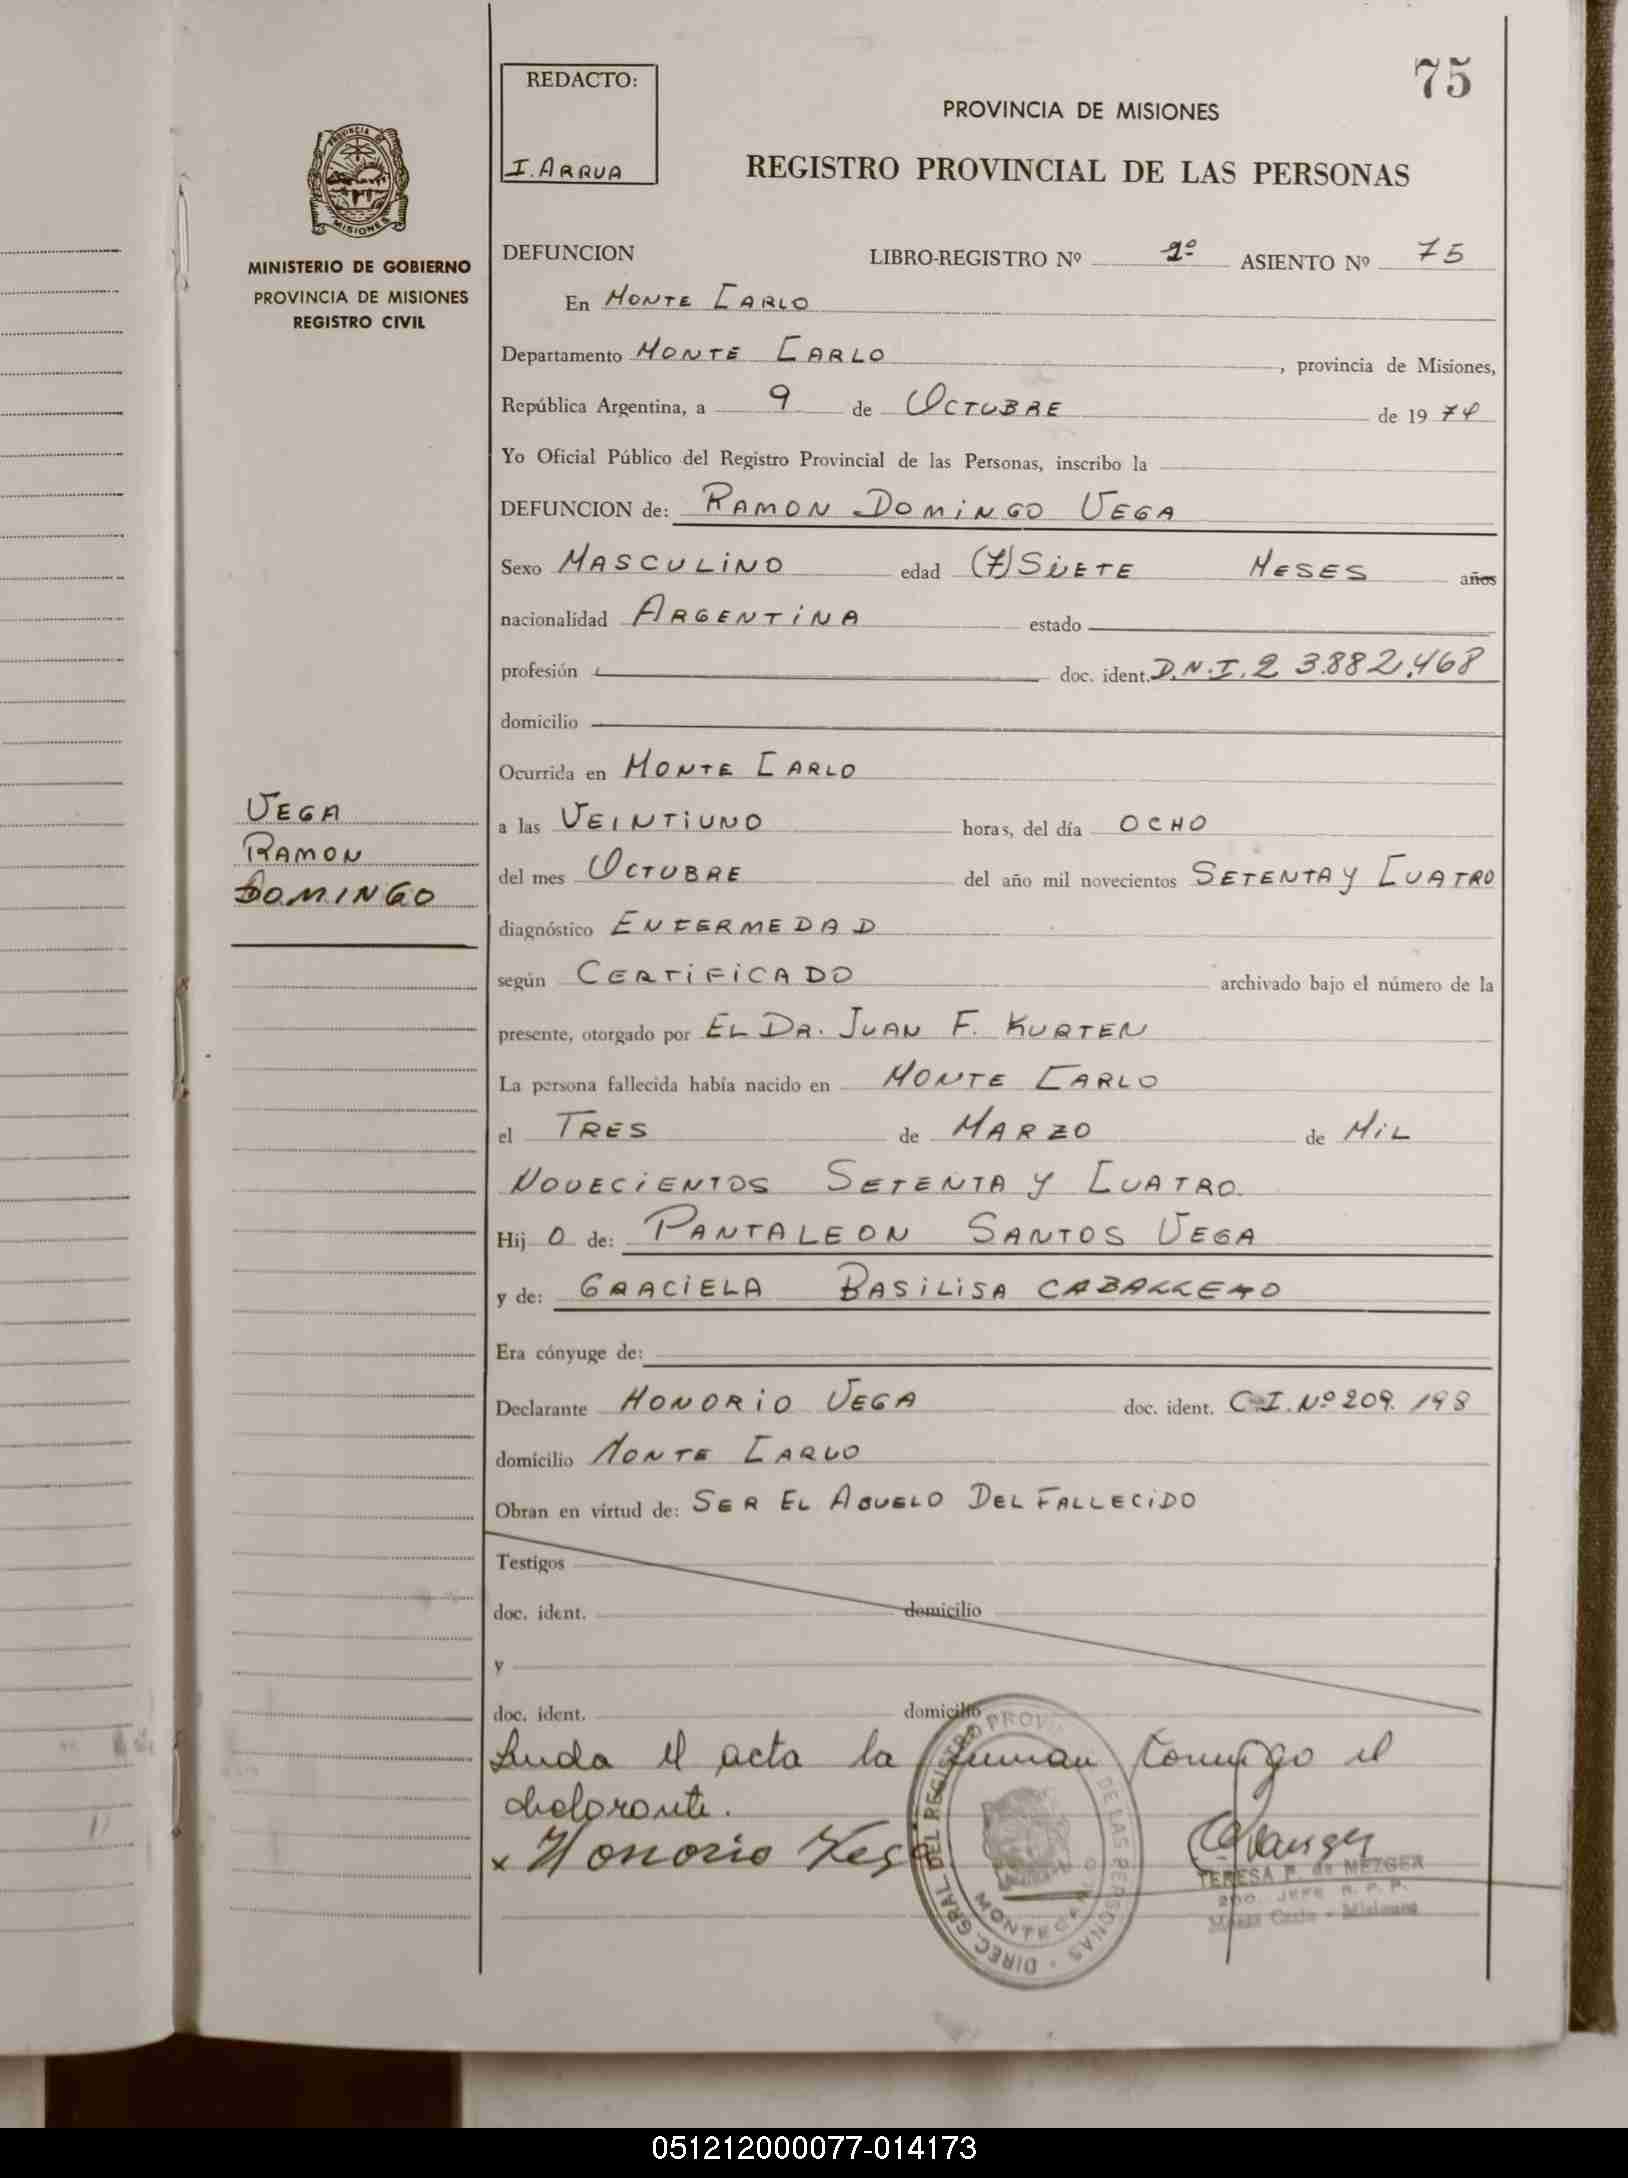 75
REDACTO:
I. ARRUA
PROVINCIA DE MISIONES
REGISTRO PROVINCIAL DE LAS PERSONAS
PROVINCIA DE
MISIONES
MINISTERIO DE GOBIERNO
PROVINCIA DE MISIONES
REGISTRO CIVIL
DEFUNCION LIBRO-REGISTRO Nº 1º ASIENTO Nº 75
En MONTE CARLO
Departamento MONTE CARLO , provincia de Misiones,
República Argentina, a 9 de OCTUBRE de 19 74
Yo Oficial Público del Registro Provincial de las Personas, inscribo la
DEFUNCION de: RAMON DOMINGO VEGA
Sexo MASCULINO edad (7) SIETE MESES años
nacionalidad ARGENTINA estado
profesión doc. ident. D.N.I. 23.882.468
domicilio
Ocurrida en MONTE CARLO
VEGA
RAMON
DOMINGO
a las VEINTIUNO horas, del día OCHO
del mes OCTUBRE del año mil novecientos SETENTA Y CUATRO
diagnóstico ENFERMEDAD
según CERTIFICADO archivado bajo el número de la
presente, otorgado por EL DR. JUAN F. KURTEN
La persona fallecida había nacido en MONTE CARLO
el TRES de MARZO de MIL
NOVECIENTOS SETENTA Y CUATRO.
Hij O de: PANTALEON SANTOS VEGA
y de: GRACIELA BASILISA CABALLERO
Era cónyuge de:
Declarante HONORIO VEGA doc. ident. C.I. Nº 209.198
domicilio MONTE CARLO
Obran en virtud de: SER EL ABUELO DEL FALLECIDO
Testigos
doc. ident. domicilio
y
doc. ident. domicilio
Leida el acta la firman conmigo el
declarante.
x Honorio Vega
DIREC. GRAL. DEL REGISTRO PROVIN DE LAS PERSONAS
MONTECARLO
TERESA P. de MEZGER
2do. JEFE R. P. P.
Monte Carlo - Misiones
051212000077-014173